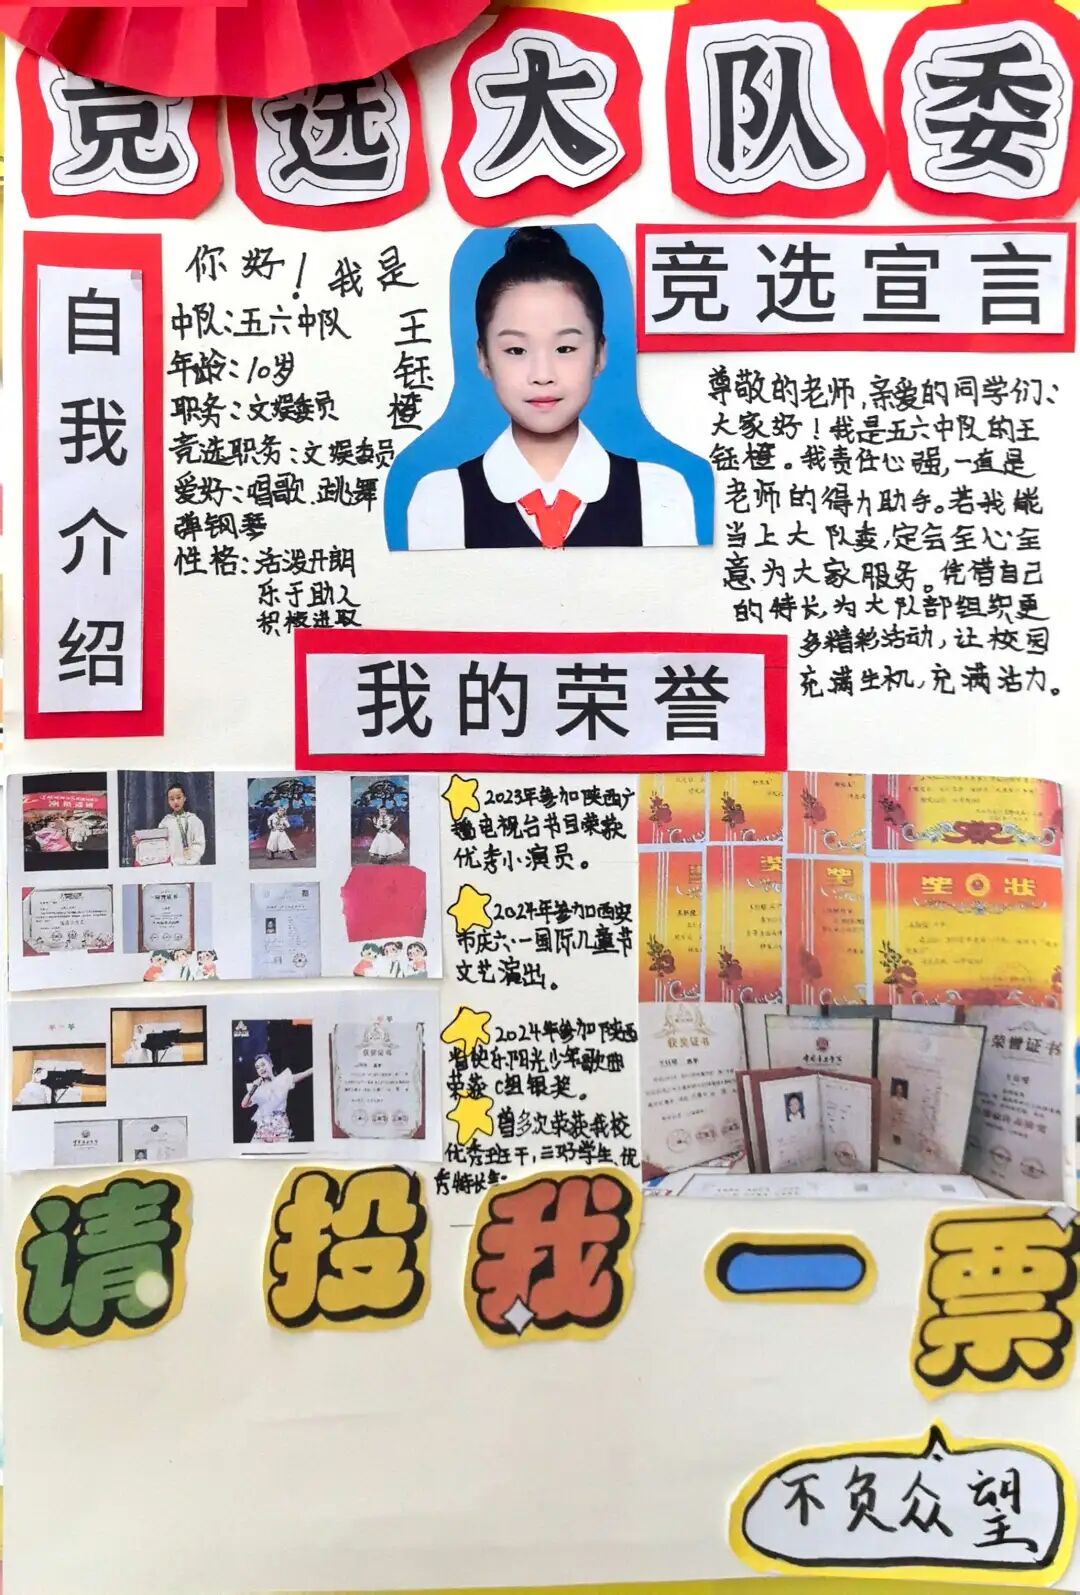 竞选大队委
自我介绍
你好！我是
王钰橙
中队：五六中队
年龄：10岁
职务：文娱委员
竞选职务：文娱委员
爱好：唱歌、跳舞
弹钢琴
性格：活泼开朗
乐于助人
积极进取
竞选宣言
尊敬的老师，亲爱的同学们：
大家好！我是五六中队的王
钰橙。我责任心强，一直是
老师的得力助手。若我能
当上大队委，定会全心全
意为大家服务。凭借自己
的特长，为大队部组织更
多精彩活动，让校园
充满生机，充满活力。
我的荣誉
2023年参加陕西广
播电视台节目荣获
优秀小演员。
2024年参加西安
市庆六·一国际儿童节
文艺演出。
2024年参加陕西
省快乐阳光少年歌曲
荣获C组银奖。
曾多次荣获我校
优秀班干，三好学生、优
秀特长生。
奖状
获奖证书
荣誉证书
请投我一票
不负众望